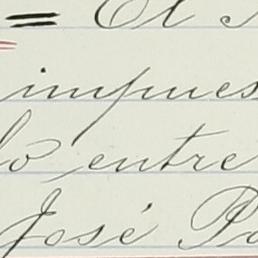 = El
impues
lo entre
José Pa